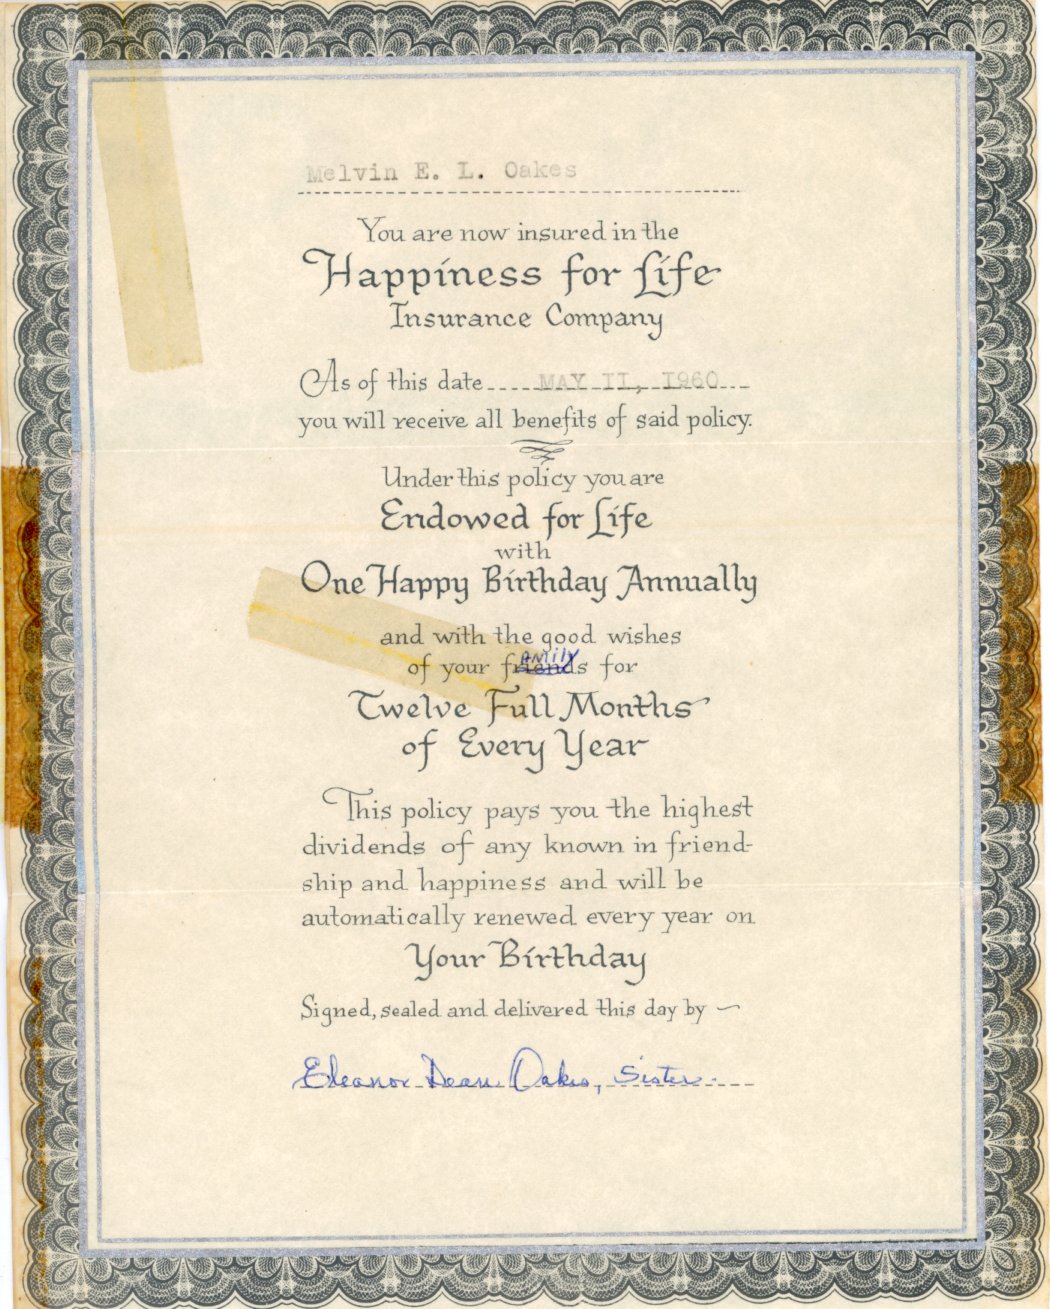 Melvin E. L. Oakes
You are now insured in the
Happiness for Life
Insurance Company
As of this date MAY II, I960
you will receive all benefits of said policy.
Under this policy you are
Endowed for Life
with
One Happy Birthday Annually
and with the good wishes
amily
of your friends for
Twelve Full Months
of Every Year
This policy pays you the highest
dividends of any known in friend-
ship and happiness and will be
automatically renewed every year on
Your Birthday
Signed, sealed and delivered this day by ~
Eleanor Dean Oakes, Sister